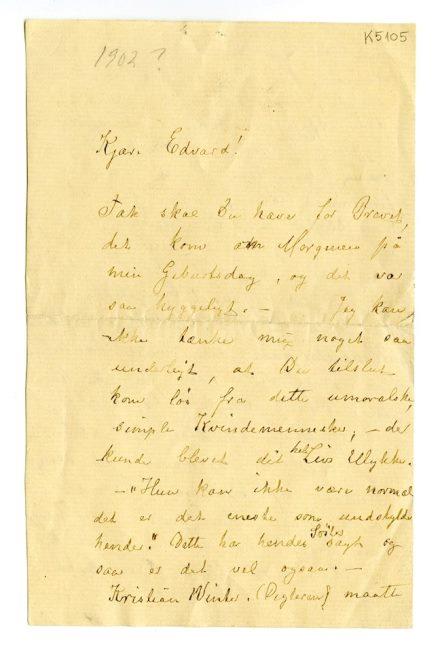 K5105
1902?
Kjære Edvard!
Tak skal Du have for Brevet,
det kom om Morgenen på
min Geburtsdag, og det va
saa hyggeligt. — Jeg kan
ikke tænke mig noget saa
underligt, at Du tilslut
kom løs fra dette umoralske,
simple Kvindemenneske, – de
kunde blevet dit hele Livs Ulykke.
– "Hun kan ikke være normal
det er det eneste som undskylder
hende." Dette har hendes Søster sagt og
saa er det vel ogsaa. —
Kristian Winter. maatte